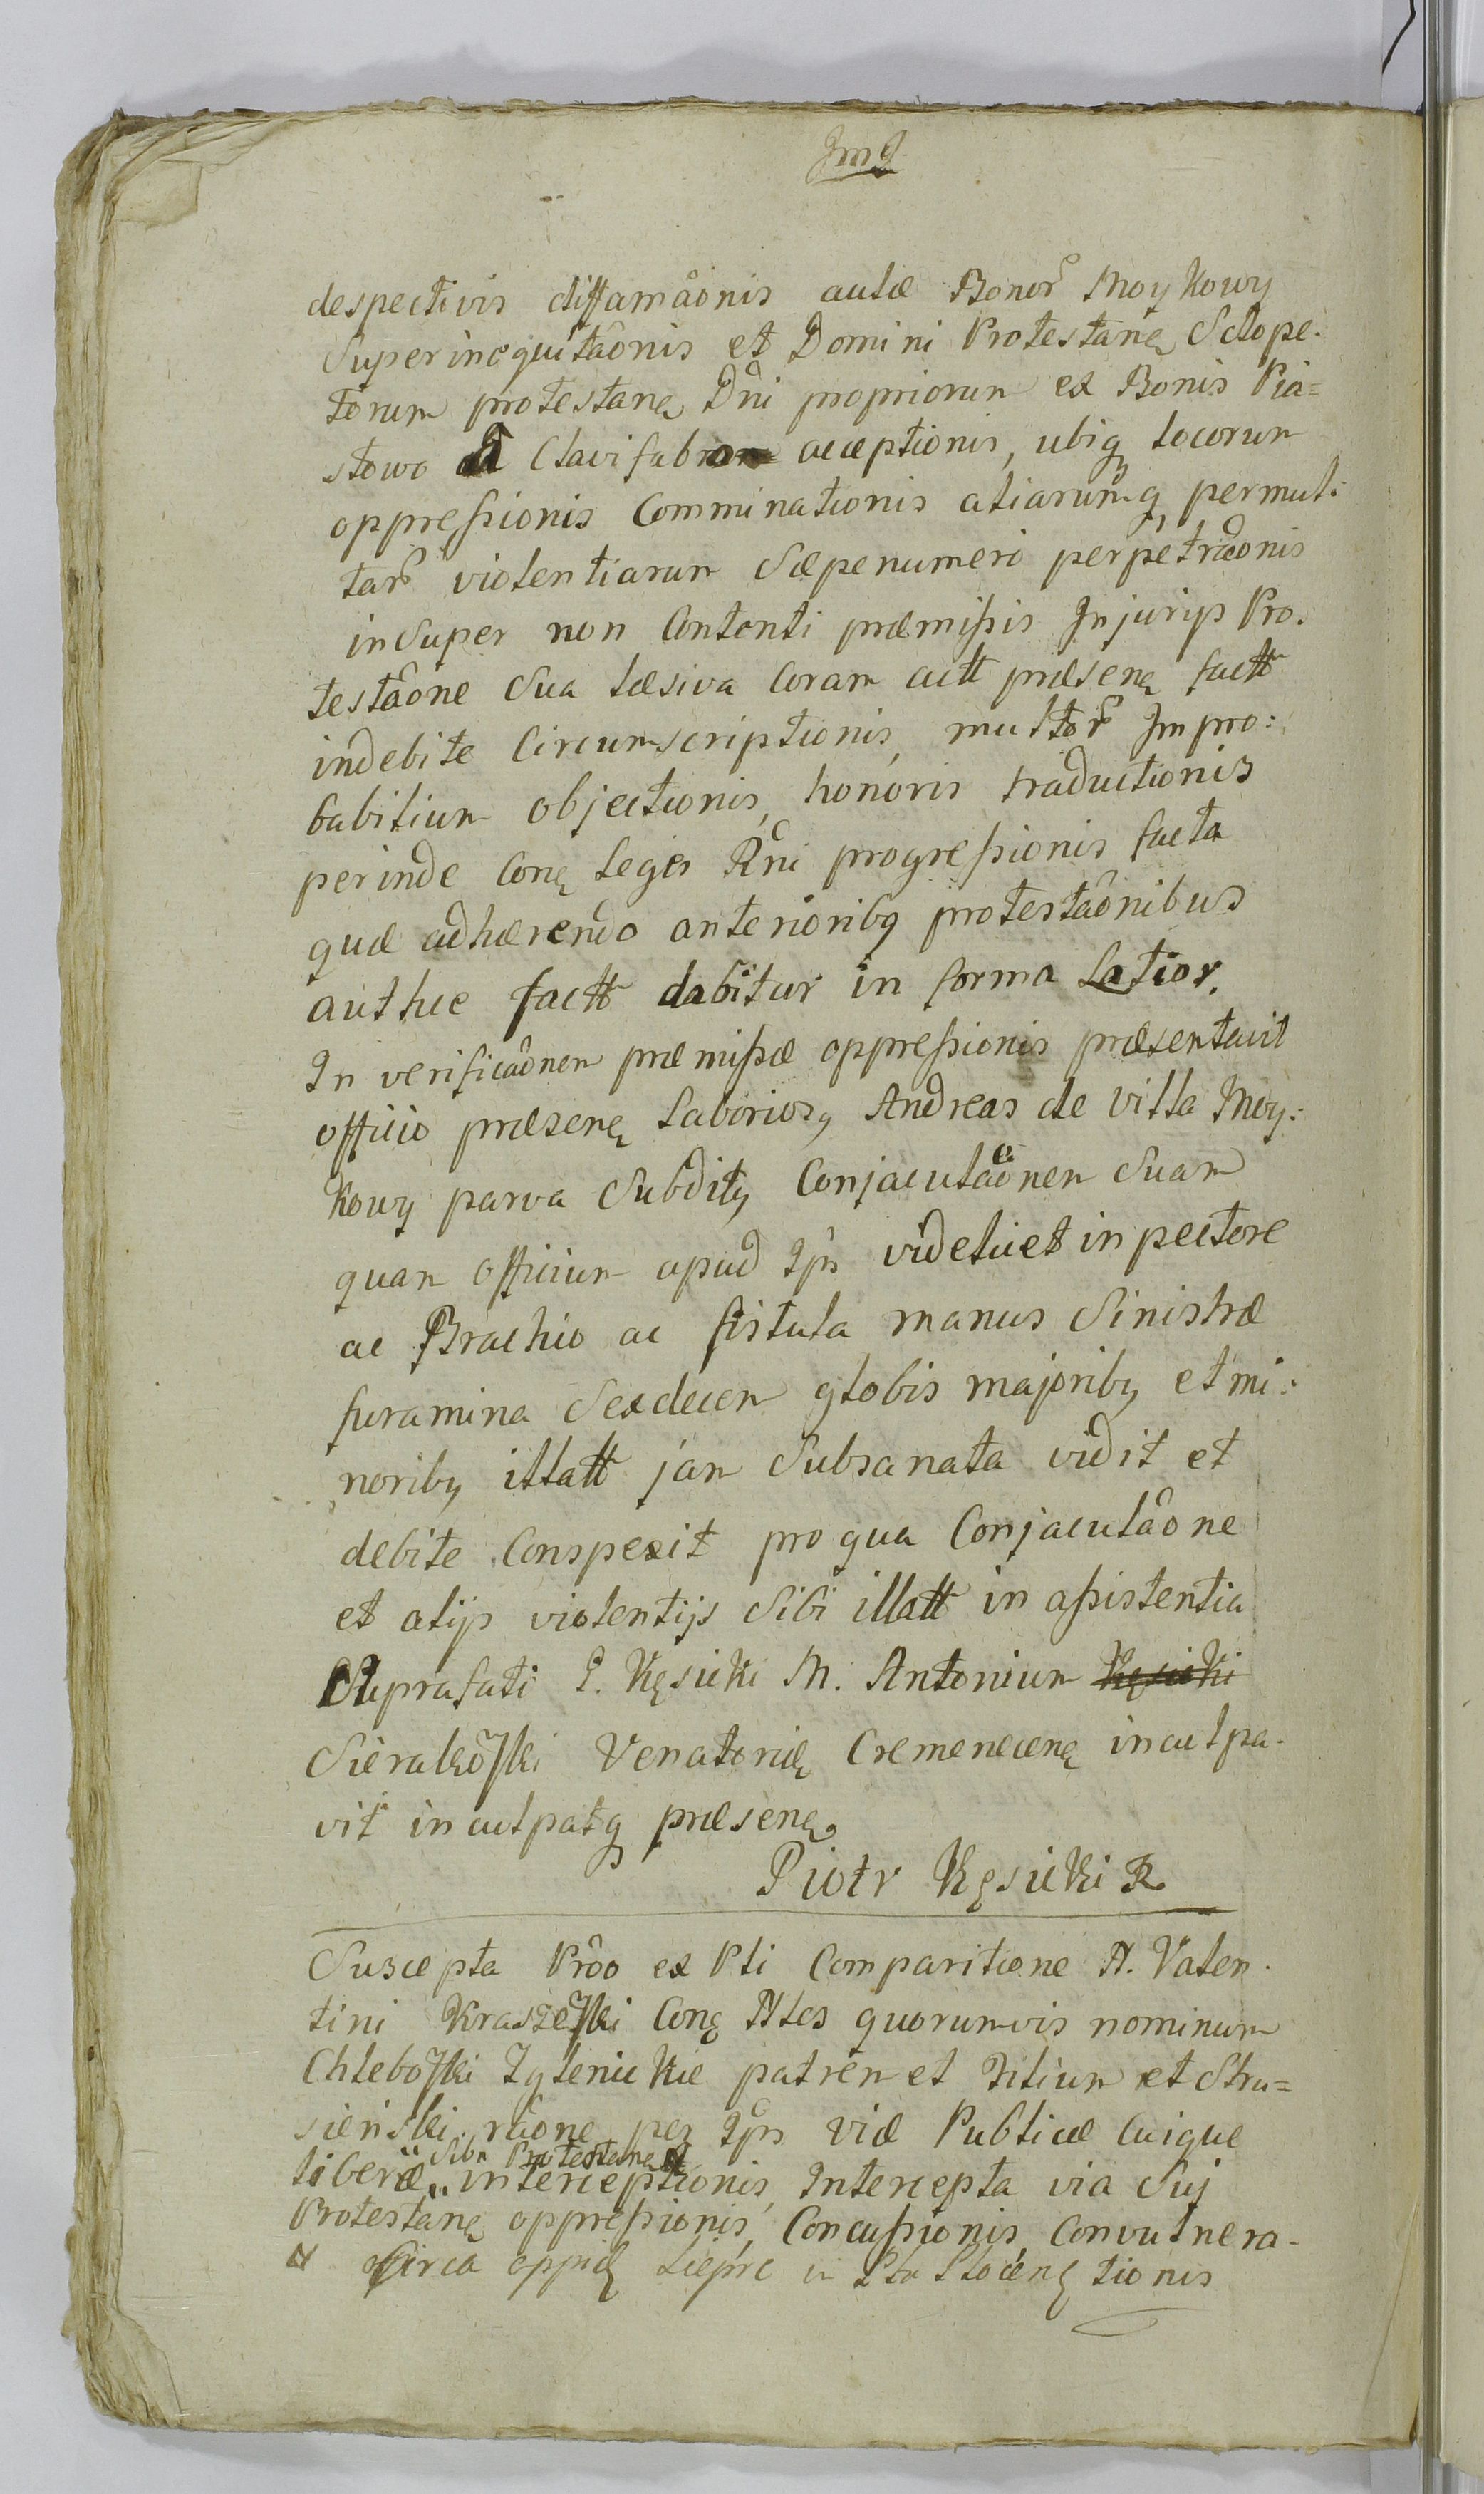 despectivis diffamãonis aulæ Bonor̃ Moykowy
Superinequitãonis et Domini Protestanę Sclope-
torum protestanę Dñi propriorum ex Bonis Pia=
stowo Clavifabro acceptionis, ubiq locorum
oppressionis Comminationis aliarumq permul:
tar̃ violentiarum Sæpenumero perpetrãonis
inSuper non Contenti præmissis Injurijs Pro.
testãone Sua læsiva Coram actt præsenę factt
indebite Circumscriptionis, multor̃ Impro:
babilium objectionis, honoris traductionis
perinde Conę Leges Rñi progressionis facta
quæ adhærendo anterioribq protestãonibus
authuc factt dabitur in forma Latior.
In verificãonem præmissæ oppressionis præsentavit
officio præsenę Laboriosq Andreas de Villa Moy:
kowy parva Subditq Conjaculãonem Suam
quam officium apud Ips̃ videlicet in pectore
ac Brachio ac fistula manus Sinistræ
foramina Sexdecem globis majoribq et mi:
noribq illatt jam Subsanata vidit et
debite Conspexit pro qua Conjaculãone
et alijs violentijs Sibi illatt in assistentia
Suprafati G. Kęsicki M. Antonium Kęsicki
Sierakow̃ski Venatorię Cremenecenę inculpa-
vit inculpatq præsenę
Piotr Kęsicki
Suscepta Prõo ex Pli Comparitione M. Valen-
tini Kraszew̃ski Conę Mles quorumvis nominum
Chlebow̃ski Zglenickie patrem et Filium et Stru=
sieński rãone per Ips̃ viæ Publicæ Cuique
Sibi Protestanę
liberæ interceptionis, Intercepta via Suj
Protestanę oppressionis, Concussionis, Convulnera-
Circa oppid Sieprc in tionis